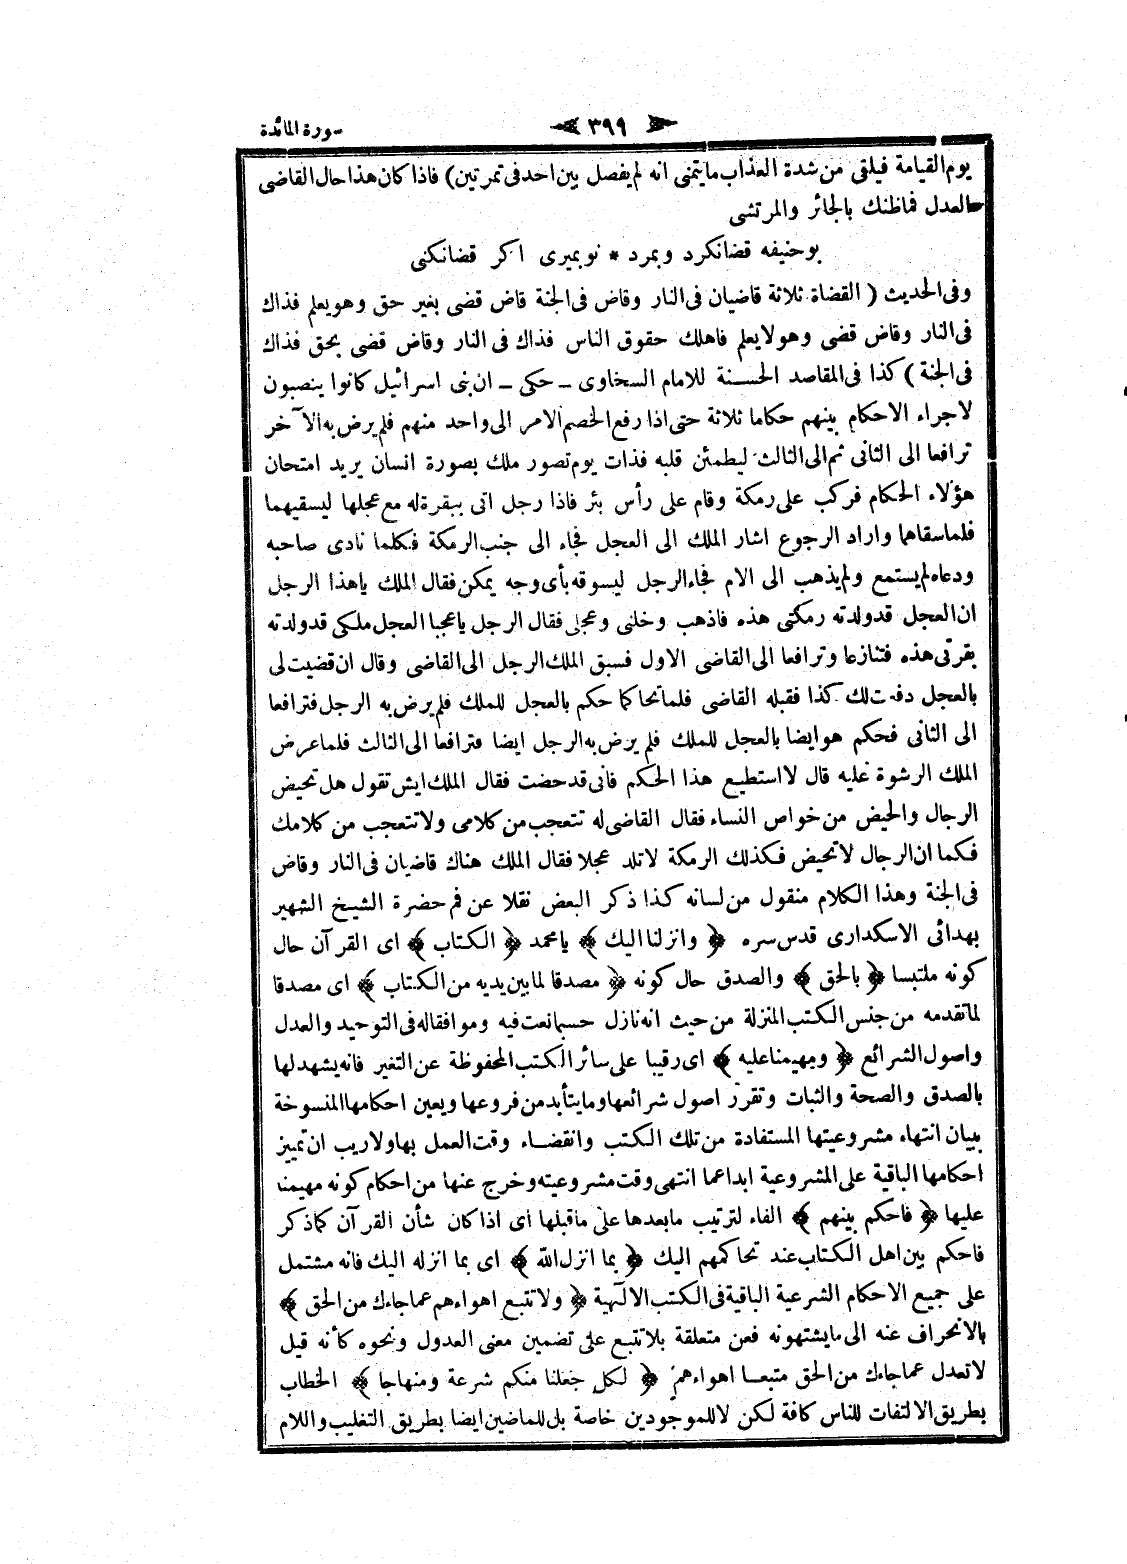 سورة المائدة
٣٩٩
يوم القيامة فيلقى من شدة العذاب مايتمنى انه لم يفصل بين احد فى تمرتين ) فاذا كان هذا حال القاضى
العدل فماظنك بالجائر والمرتشى
بوحنيفه قضانكرد وبمرد * توبميرى اكر قضانكنى
وفى الحديث ( القضاة ثلاثة قاضيان فى النار وقاض فى الجنة قاض قضى بغير حق وهو يعلم فذاك
فى النار وقاض قضى وهو لا يعلم فاهلك حقوق الناس فذاك فى النار وقاض قضى بحق فذاك
فى الجنة ) كذا فى المقاصد الحسنة للامام السخاوى ـ حكى ـ ان بنى اسرائيل كانوا ينصبون
لاجراء الاحكام بينهم حكاما ثلاثة حتى اذا رفع الخصم الامر الى واحد منهم فلم يرض به الآخر
ترافعا الى الثانى ثم الى الثالث ليطمئن قلبه فذات يوم تصور ملك بصورة انسان يريد امتحان
هؤلاء الحكام فركب على رمكة وقام على رأس بئر فاذا رجل اتى ببقرة له مع عجلها ليسقيهما
فلما سقاهما واراد الرجوع اشار الملك الى العجل فجاء الى جنب الرمكة فكلما نادى صاحبه
ودعاه لم يستمع ولم يذهب الى الام فجاء الرجل ليسوقه بأى وجه يمكن فقال الملك ياهذا الرجل
ان العجل قدولدته رمكتى هذه فاذهب وخلنى وعجلى فقال الرجل ياعجبا العجل ملكى قدولدته
بقرتى هذه فتنازعا وترافعا الى القاضى الاول فسبق الملك الرجل الى القاضى وقال ان قضيت لى
بالعجل دفعت لك كذا فقبله القاضى فلما تحاكما حكم بالعجل للملك فلم يرض به الرجل فترافعا
الى الثانى فحكم هو ايضا بالعجل للملك فلم يرض به الرجل ايضا فترافعا الى الثالث فلما عرض
الملك الرشوة عليه قال لا استطيع هذا الحكم فانى قد حضت فقال الملك ايش تقول هل تحيض
الرجال والحيض من خواص النساء فقال القاضى له تتعجب من كلامى ولا تتعجب من كلامك
فكما ان الرجال لا تحيض فكذلك الرمكة لا تلد عجلا فقال الملك هناك قاضيان فى النار وقاض
فى الجنة وهذا الكلام منقول من لسانه كذا ذكر البعض نقلا عن فم حضرة الشيخ الشهير
بهدائى الاسكدارى قدس سره ﴿ وانزلنا اليك ﴾ يامحمد ﴿ الكتاب ﴾ اى القرآن حال
كونه ملتبسا ﴿ بالحق ﴾ والصدق حال كونه ﴿ مصدقا لما بين يديه من الكتاب ﴾ اى مصدقا
لما تقدمه من جنس الكتب المنزلة من حيث انه نازل حسبما نعت فيه وموافقا له فى التوحيد والعدل
واصول الشرائع ﴿ ومهيمنا عليه ﴾ اى رقيبا على سائر الكتب المحفوظة عن التغير فانه يشهد لها
بالصدق والصحة والثبات وتقرر اصول شرائعها ومايتأبد من فروعها ويعين احكامها المنسوخة
ببيان انتهاء مشروعيتها المستفادة من تلك الكتب وانقضاء وقت العمل بها ولاريب ان تمييز
احكامها الباقية على المشروعية ابدا عما انتهى وقت مشروعيته وخرج عنها من احكام كونه مهيمنا
عليها ﴿ فاحكم بينهم ﴾ الفاء لترتيب مابعدها على ماقبلها اى اذا كان شأن القرآن كماذكر
فاحكم بين اهل الكتاب عند تحاكمهم اليك ﴿ بما انزل الله ﴾ اى بما انزله اليك فانه مشتمل
على جميع الاحكام الشرعية الباقية فى الكتب الالهية ﴿ ولا تتبع اهواءهم عما جاءك من الحق ﴾
بالانحراف عنه الى مايشتهونه فعن متعلقة بلاتتبع على تضمين معنى العدول ونحوه كأنه قيل
لاتعدل عما جاءك من الحق متبعا اهواءهم ﴿ لكل جعلنا منكم شرعة ومنهاجا ﴾ الخطاب
بطريق الالتفات للناس كافة لكن لا للموجودين خاصة بل للماضين ايضا بطريق التغليب واللام